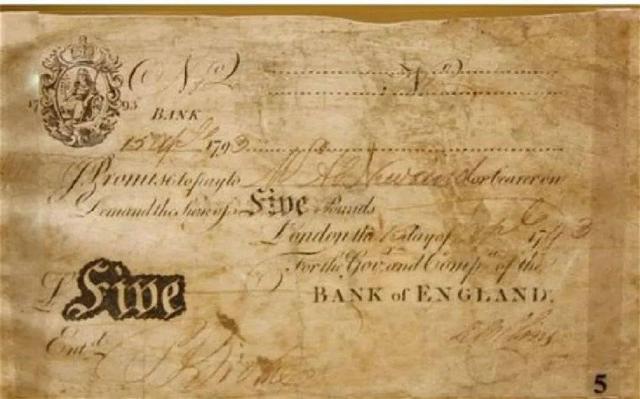 No No
17 93
BANK
15 Apl 1793
I Promise to pay to Mr Abm Newland or bearer on
Demand the Sum of Five Pounds
London the 15 day of Apl 1793
For the Govr and Compa of the
£ Five BANK of ENGLAND.
Entd
5